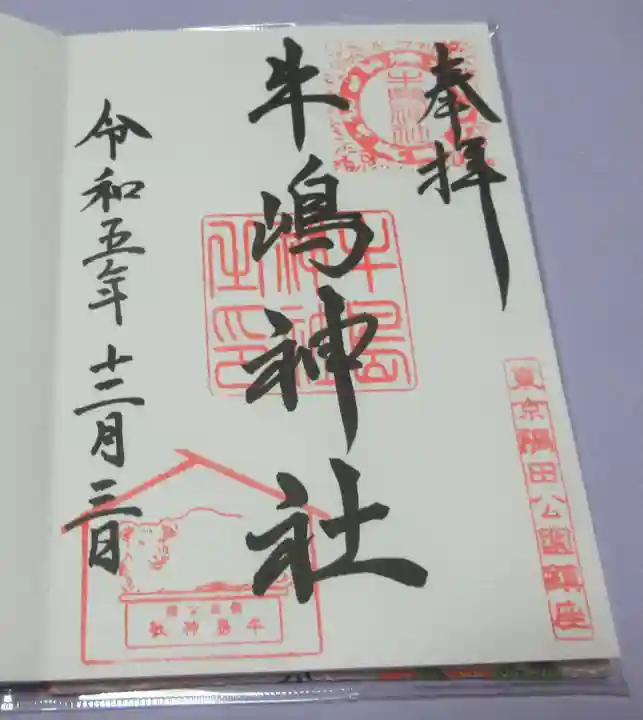 奉拝
牛嶋神社
令和五年 十二月三日
東京隅田公園鎮座
牛嶋神社
之印
牛島神社